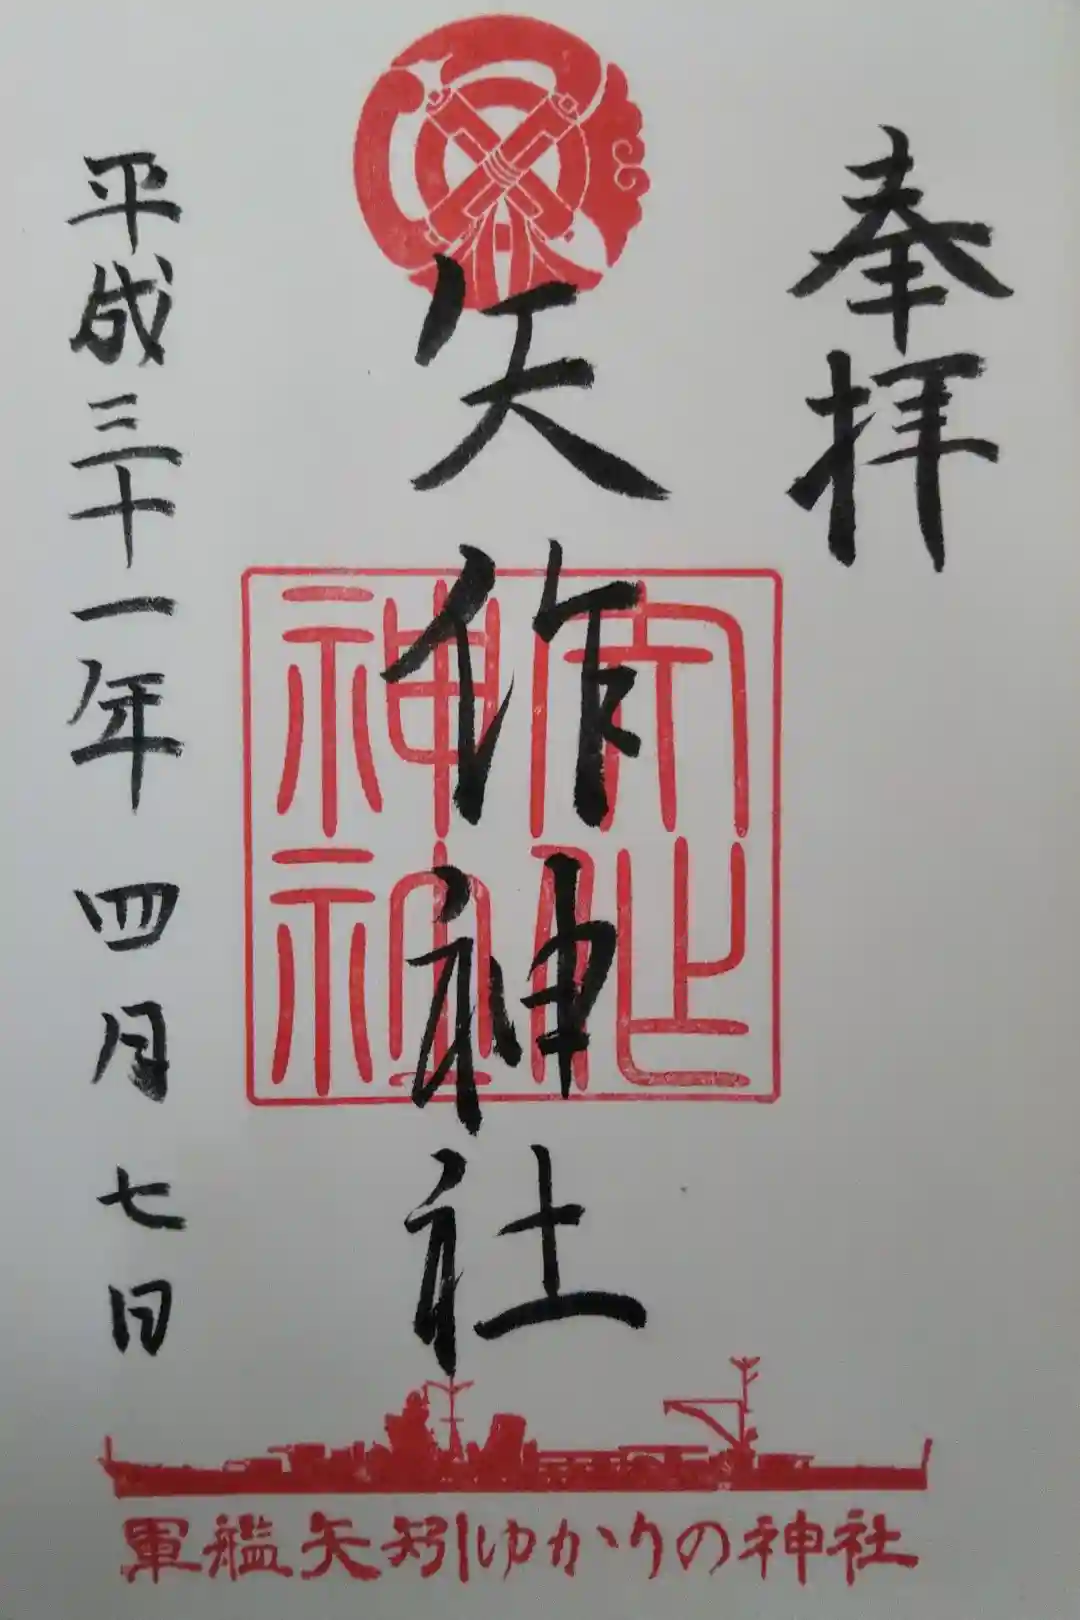 奉拝
矢作神社
矢作神社
平成三十一年四月七日
軍艦矢矧ゆかりの神社